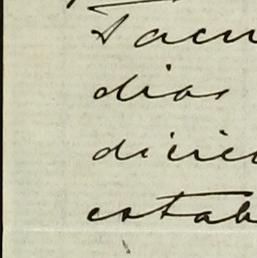 Tacu
dias
divie
estab